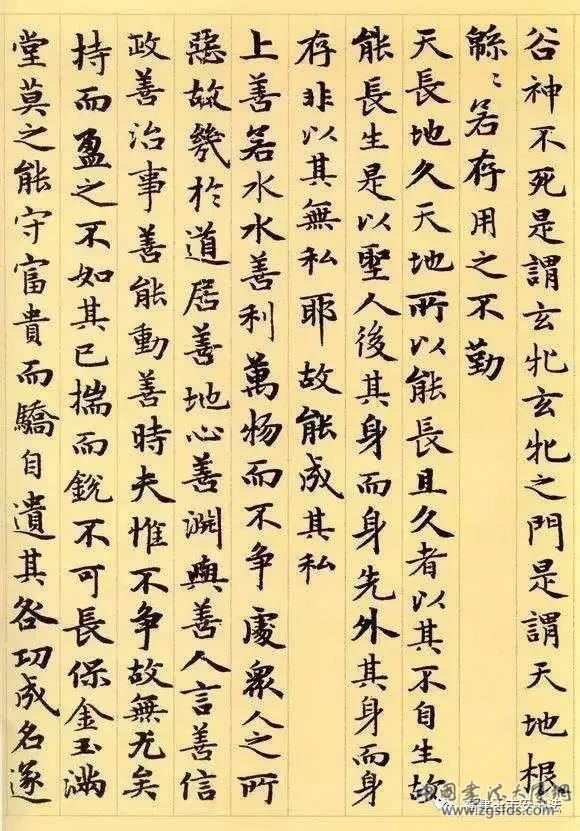 谷神不死是謂玄牝玄牝之門是謂天地根
緜〻若存用之不勤
天長地久天地所以能長且久者以其不自生故
能長生是以聖人後其身而身先外其身而身
存非以其無私耶故能成其私
上善若水水善利萬物而不争處眾人之所
惡故幾於道居善地心善淵與善人言善信
政善治事善能動善時夫惟不争故無尤矣
持而盈之不如其已揣而銳不可長保金玉滿
堂莫之能守富貴而驕自遺其咎功成名遂
中國書法大會網
www.zgsfds.com